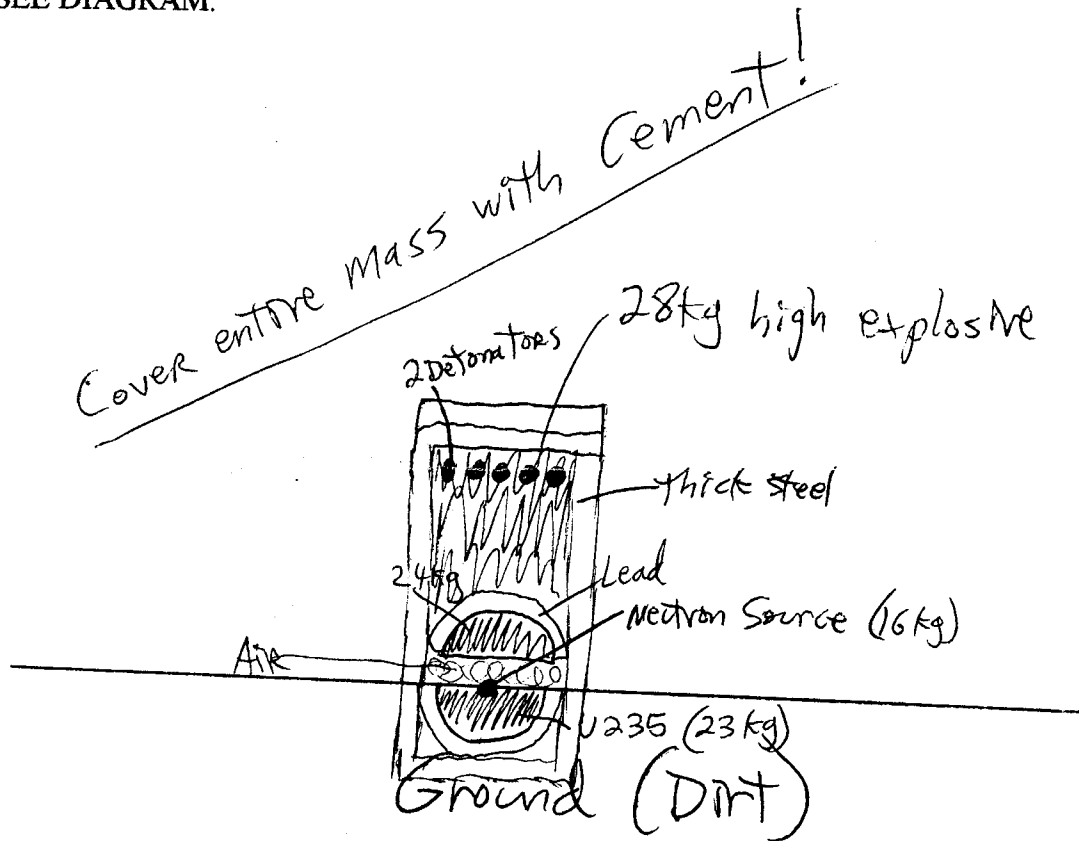 SEE DIAGRAM.
Cover entire mass with Cement!
28kg high explosive
2 Detonators
thick steel
24kg
Lead
Neutron Source (16 kg)
Air
U235 (23 kg)
Ground (Dirt)